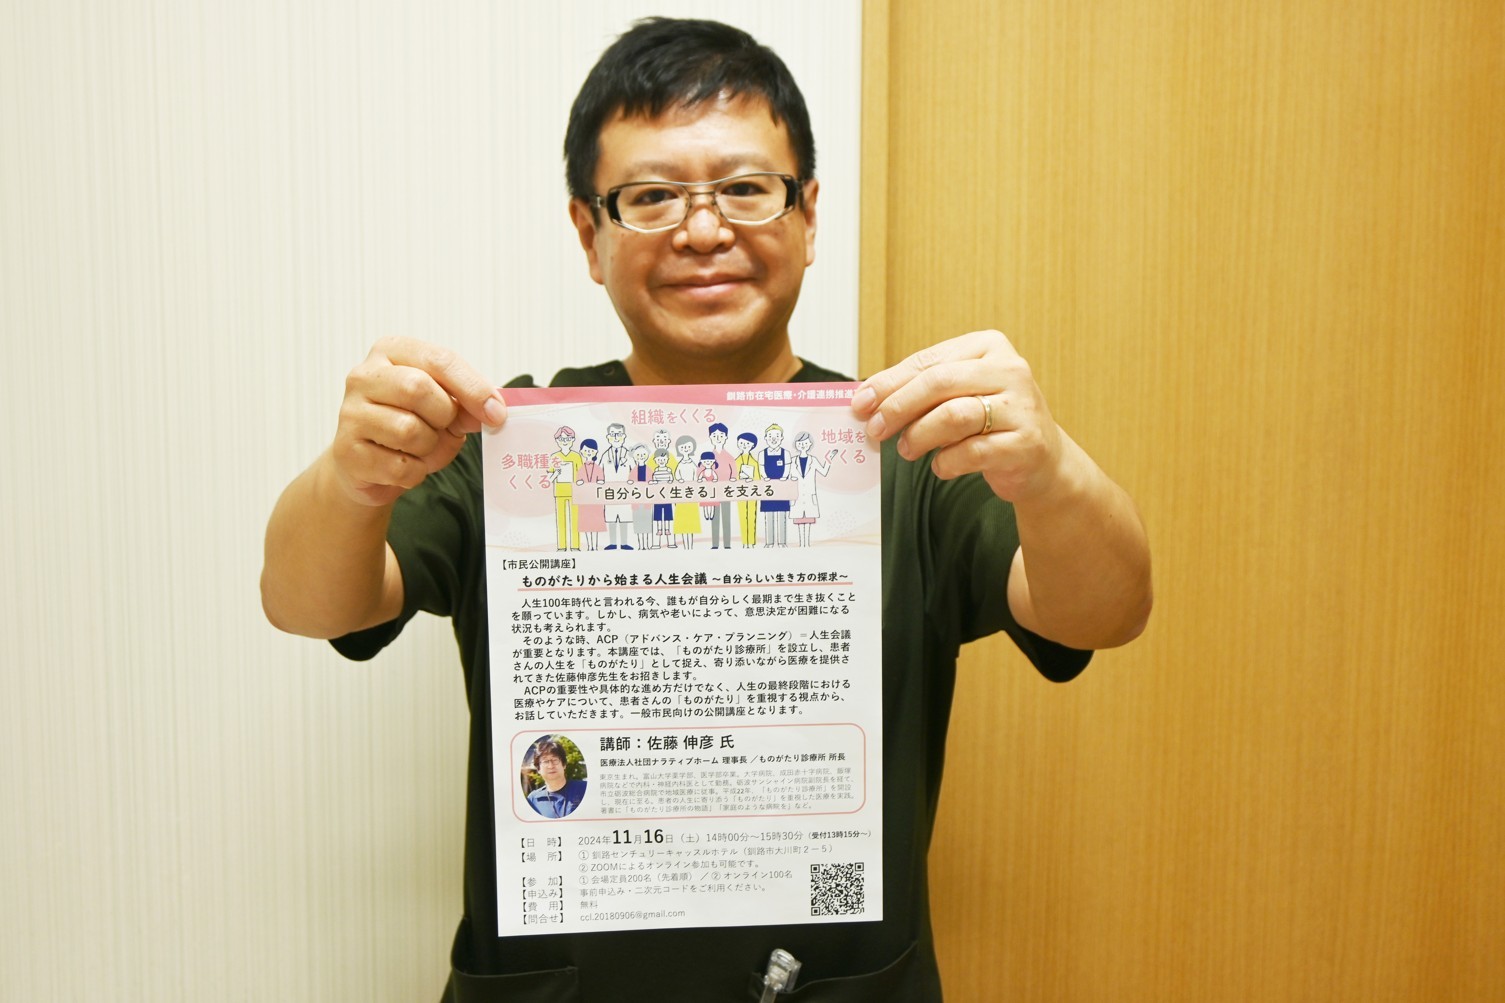 釧路市在宅医療・介護連携推進
組織をくくる
多職種を
くくる
地域を
くくる
「自分らしく生きる」を支える
【市民公開講座】
ものがたりから始まる人生会議 ～自分らしい生き方の探求～
人生100年時代と言われる今、誰もが自分らしく最期まで生き抜くこと
を願っています。しかし、病気や老いによって、意思決定が困難になる
状況も考えられます。
そのような時、ACP（アドバンス・ケア・プランニング）＝人生会議
が重要となります。本講座では、「ものがたり診療所」を設立し、患者
さんの人生を「ものがたり」として捉え、寄り添いながら医療を提供さ
れてきた佐藤伸彦先生をお招きします。
ACPの重要性や具体的な進め方だけでなく、人生の最終段階における
医療やケアについて、患者さんの「ものがたり」を重視する視点から、
お話していただきます。一般市民向けの公開講座となります。
講師：佐藤 伸彦 氏
医療法人社団ナラティブホーム 理事長 ／ものがたり診療所 所長
東京生まれ。富山大学薬学部、医学部卒業。大学病院、成田赤十字病院、飯塚
病院などで内科・神経内科医として勤務。砺波サンシャイン病院副院長を経て、
市立砺波総合病院で地域医療に従事。平成22年、「ものがたり診療所」を開設
し、現在に至る。患者の人生に寄り添う「ものがたり」を重視した医療を実践。
著書に「ものがたり診療所の物語」「家庭のような病院を」など。
【日　時】 2024年11月16日（土）14時00分～15時30分（受付13時15分～）
【場　所】 ① 釧路センチュリーキャッスルホテル（釧路市大川町２－５）
② ZOOMによるオンライン参加も可能です。
【参　加】 ① 会場定員200名（先着順） ／ ② オンライン100名
【申込み】 事前申込み・二次元コードをご利用ください。
【費　用】 無料
【問合せ】 ccl.20180906@gmail.com